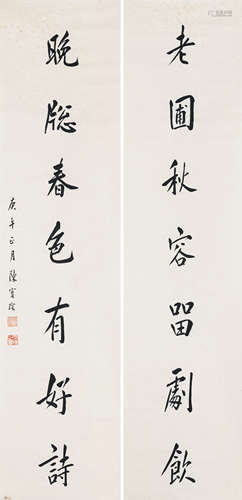 老圃秋容留劇飲
晚牕春色有好詩
庚午正月陳寶琛